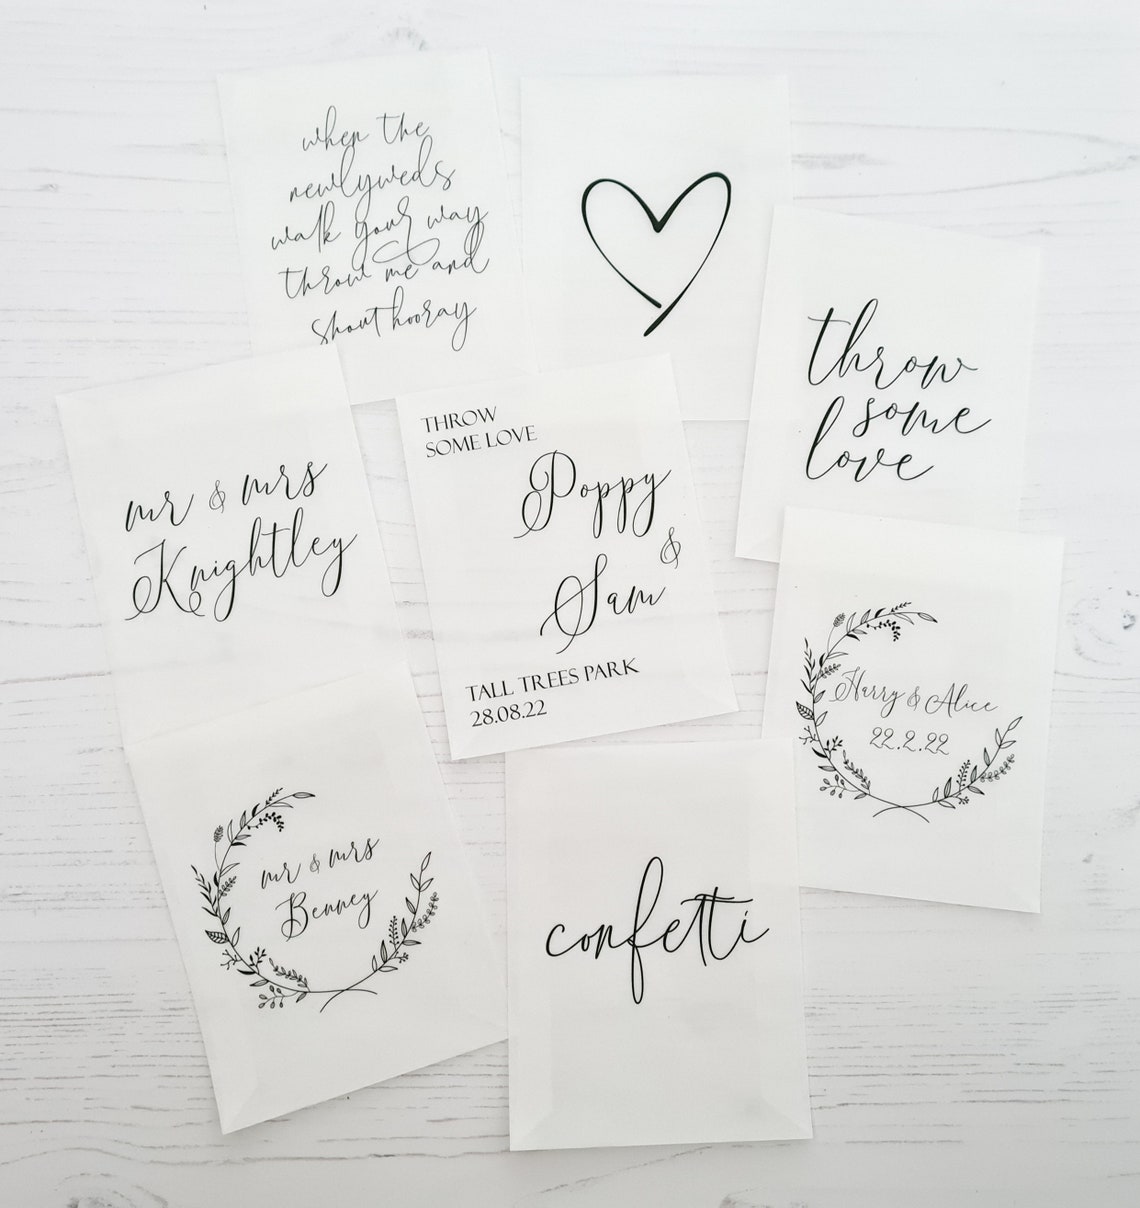 when the
newlyweds
walk your way
throw me and
shout hooray
throw
some
love
mr & mrs
Knightley
THROW
SOME LOVE
Poppy
&
Sam
TALL TREES PARK
28.08.22
Harry & Alice
22.2.22
mr & mrs
Benney
confetti